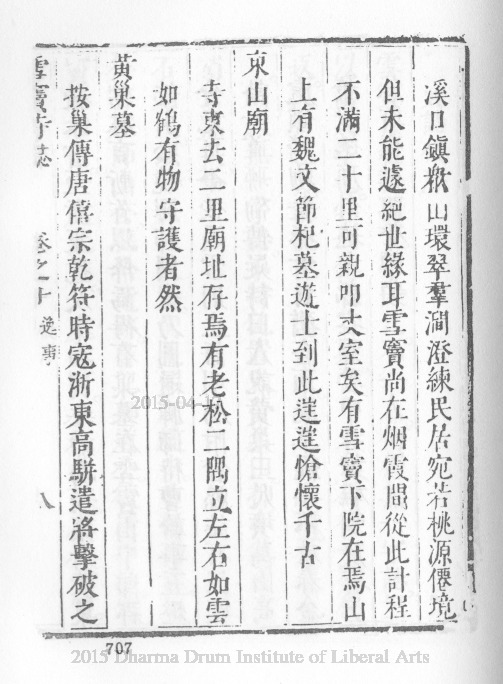 溪口鎮數山環翠羣澗澄練民居宛若桃源僊境
但未能遽絕世緣耳雪竇尚在烟霞間從此計程
不滿二十里可親叩丈室矣有雪竇下院在焉山
上有魏文節杞墓遊士到此遑遑愴懷千古
東山廟
寺東去一里廟址存焉有老松二隅立左右如雲
如鶴有物守護者然
黃巢墓
按巢傳唐僖宗乾符時寇浙東高駢遣將擊破之
雪竇寺誌 卷之十 逸事 八
2015-04-1
707
2015 Dharma Drum Institute of Liberal Arts